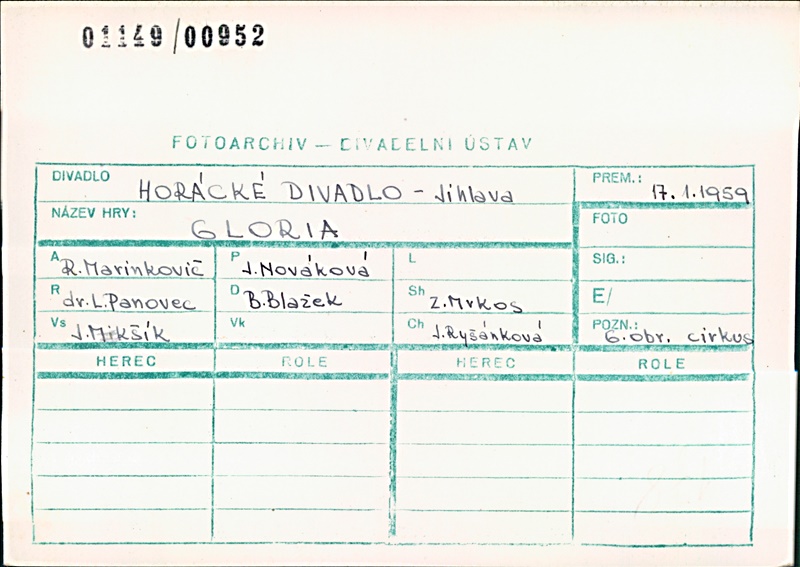 01149/00952
FOTOARCHIV — DIVADELNÍ ÚSTAV
DIVADLO HORÁCKÉ DIVADLO - Jihlava PREM.: 17.1.1959
NÁZEV HRY: GLORIA FOTO
A R.Marinkovič P J.Nováková L SIG.:
R dr.L.Panovec D B.Blažek Sh Z.Mrkos E/
Vs J.Mikšík Vk Ch J.Ryšánková POZN.: 6.obr. cirkus
HEREC ROLE HEREC ROLE